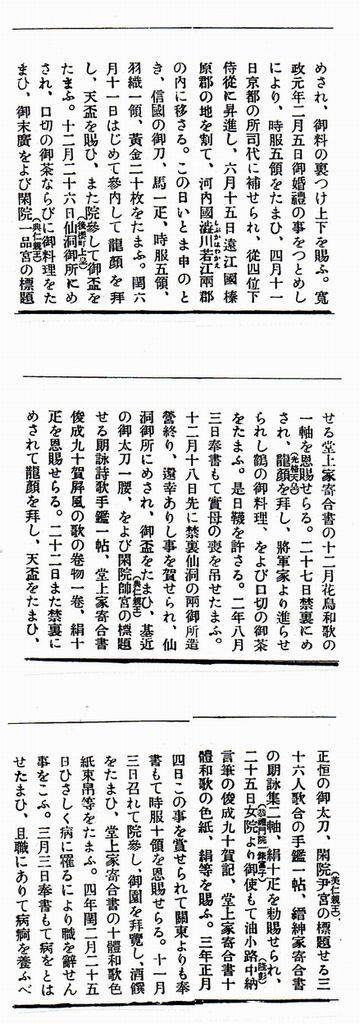 めされ、御料の裏つけ上下を賜ふ。寬
政元年二月五日御婚禮の事をつとめし
により、時服五領をたまひ、四月十一
日京都の所司代に補せられ、從四位下
侍從に昇進し、六月十五日遠江國榛
原郡の地を割て、河内國澁川若江兩郡
の内に移さる。この日いとま申のと
き、信國の御刀、馬一疋、時服五領、
羽織一領、黃金二十枚をたまふ。閏六
月十一日はじめて參内して龍顏を拜
し、天盃を賜ひ、また院參して御盃を
たまふ。十二月二十六日仙洞御所にめ
され、口切の御茶ならびに御料理をた
まひ、御末廣をよび閑院一品宮(典仁親王)の標題
せる堂上家寄合書の十二月花鳥和歌の
一軸を恩賜せらる。二十七日禁裏にめ
され、龍顏を拜し、將軍家より進らせ
られし鶴の御料理、をよび口切の御茶
をたまふ。是日韈を許さる。二年八月
三日奉書もて實母の喪を吊せたまふ。
十二月十八日先に禁裏仙洞の兩御所造
營終り、還幸ありし事を賀せられ、仙
洞御所にめされ、御盃をたまひ、基近
の御太刀一腰、をよび閑院帥宮(典仁親王)の標題
せる朗詠詩歌手鑑一帖、堂上家寄合書
俊成九十賀屛風の歌の卷物一卷、絹十
疋を恩賜せらる。二十二日また禁裏に
めされて龍顏を拜し、天盃をたまひ、
正恒の御太刀、閑院尹宮(美仁親王)の標題せる三
十六人歌合の手鑑一帖、縉紳家寄合書
の朗詠集二軸、絹十疋を勅賜せられ、
二十五日女院より御使もて油小路中納
言筆の俊成九十賀記、堂上家寄合書十
體和歌の色紙、絹等を賜ふ。三年正月
四日この事を賞せられて關東よりも奉
書もて時服十領を恩賜せらる。十一月
三日召れて院參し、御園を拜覽し、酒饌
をたまひ、堂上家寄合書の十體和歌色
紙束帛等をたまふ。四年閏二月二十五
日ひさしく病に罹るにより職を辭せん
事をこふ。三月三日奉書もて病をとは
せたまひ、且職にありて病痾を養ふべ